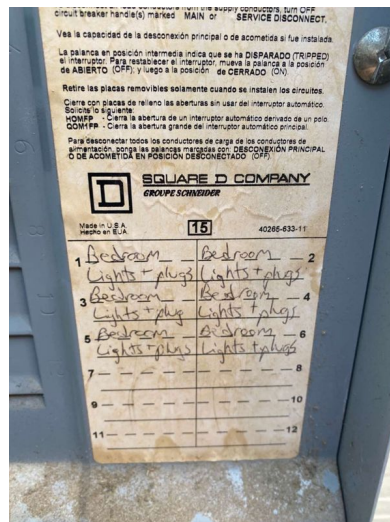 from the supply conductors, turn OFF
circuit breaker handle(s) marked MAIN or SERVICE DISCONNECT.
Vea la capacidad de la desconexión principal o de acometida si fue instalada.
La palanca en posición intermedia indica que se ha DISPARADO (TRIPPED)
el interruptor. Para restablecer el interruptor, mueva la palanca a la posición
de ABIERTO (OFF); y luego a la posición de CERRADO (ON).
Retire las placas removibles solamente cuando se instalen los circuitos.
Cierre con placas de relleno las aberturas sin usar del interruptor automático.
Solicite lo siguiente:
HOMFP - Cierra la abertura de un interruptor automático derivado de un polo.
QOM1FP - Cierra la abertura grande del interruptor automático principal.
Para desconectar todos los conductores de carga de los conductores de
alimentación, ponga las palancas marcadas con: DESCONEXIÓN PRINCIPAL
O DE ACOMETIDA EN POSICIÓN DESCONECTADO (OFF).
D SQUARE D COMPANY
GROUPE SCHNEIDER
Made in U.S.A.
Hecho en EUA
15
40265-633-11
1 Bedroom Bedroom 2
Lights + plugs Lights + plugs
3 Bedroom Bedroom 4
Lights + plug Lights + plugs
5 Bedroom Bedroom 6
Lights + plugs Lights + plugs
7 8
9 10
11 12